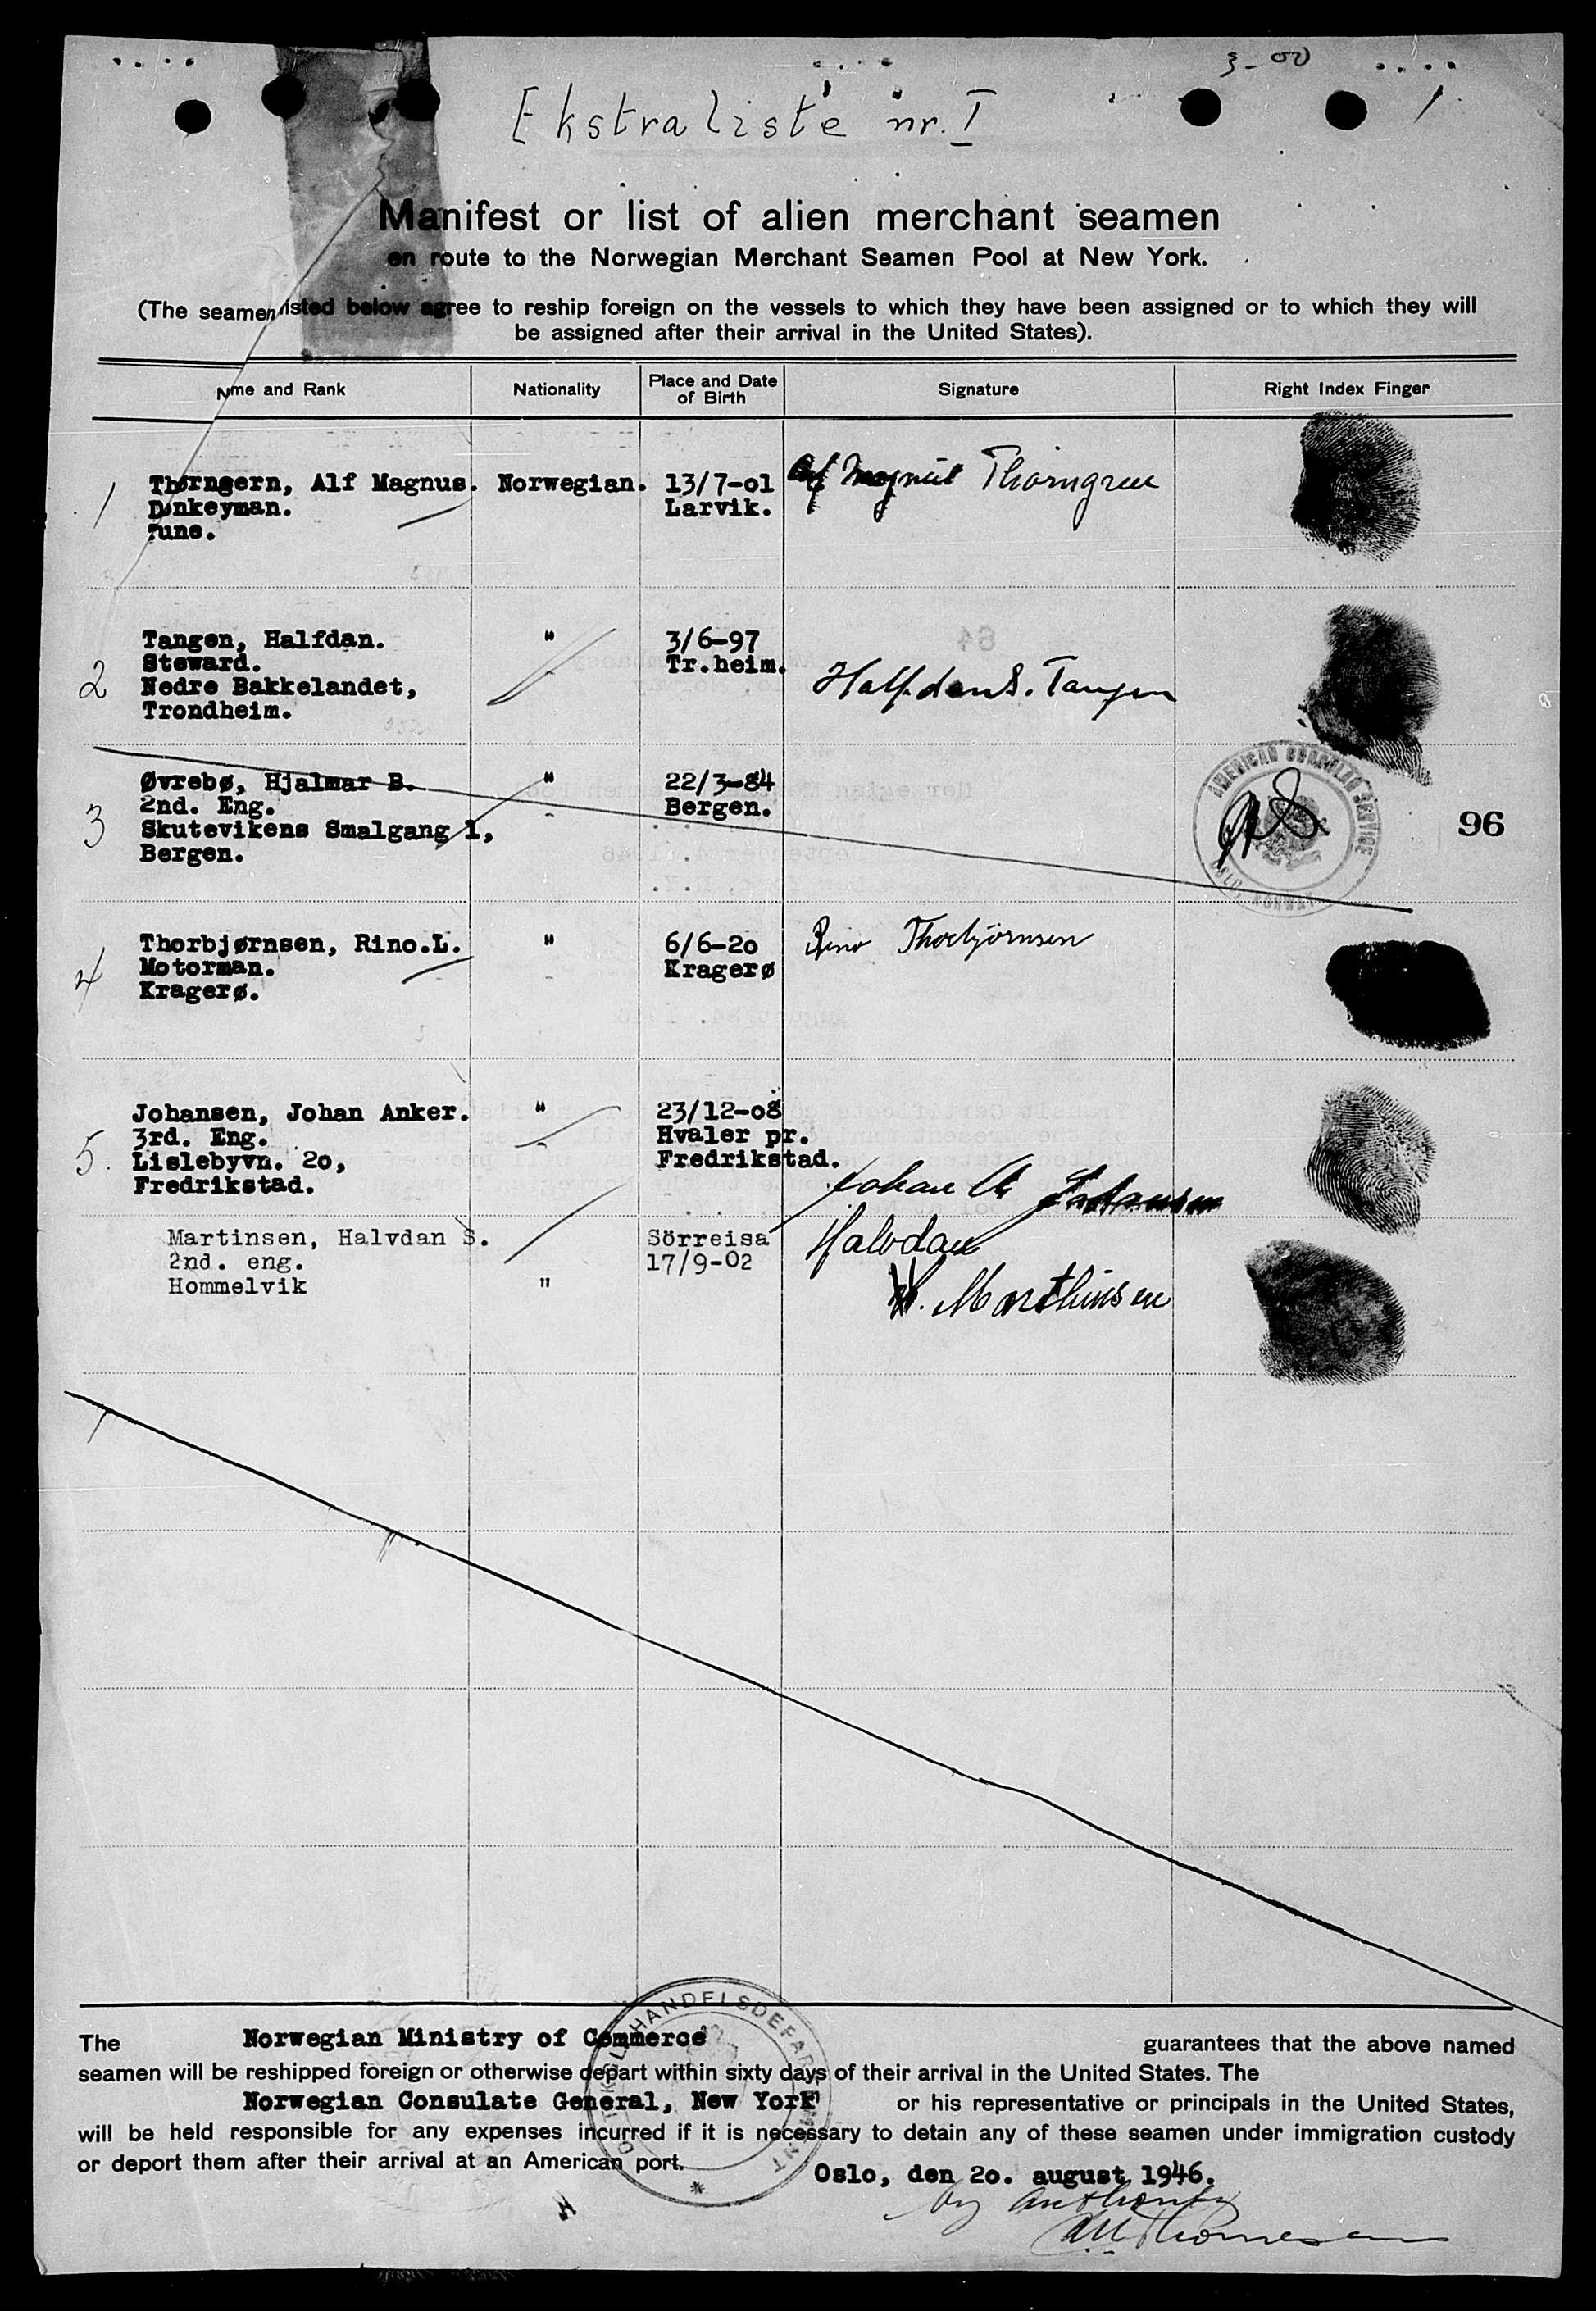 3-00
Ekstraliste nr. I
Manifest or list of alien merchant seamen
en route to the Norwegian Merchant Seamen Pool at New York.
(The seamen listed below agree to reship foreign on the vessels to which they have been assigned or to which they will
be assigned after their arrival in the United States).
Name and Rank Nationality Place and Date of Birth Signature Right Index Finger
1 Thorngern, Alf Magnus. Norwegian. 13/7-01 Alf Magnus Thorngren
Donkeyman. Larvik.
Tune.
Tangen, Halfdan. " 3/6-97
Steward. Tr.heim.
2 Nedre Bakkelandet, Halfdan S. Tangen
Trondheim.
Øvrebø, Hjalmar B. " 22/3-84
2nd. Eng. Bergen.
3 Skutevikens Smalgang 1,
Bergen.
AMERICAN CONSULAR SERVICE
OSLO, NORWAY
96
Thorbjørnsen, Rino.L. " 6/6-20 Rino Thorbjörnsen
4 Motorman. Kragerø
Kragerø.
Johansen, Johan Anker. " 23/12-08
3rd. Eng. Hvaler pr.
5. Lislebyvn. 20, Fredrikstad.
Fredrikstad. Johan A Johansen
Martinsen, Halvdan S. Sörreisa Halvdan
2nd. eng. 17/9-02
Hommelvik " . Marthinsen
The Norwegian Ministry of Commerce guarantees that the above named
seamen will be reshipped foreign or otherwise depart within sixty days of their arrival in the United States. The
Norwegian Consulate General, New York or his representative or principals in the United States,
will be held responsible for any expenses incurred if it is necessary to detain any of these seamen under immigration custody
or deport them after their arrival at an American port.
Oslo, den 20. august 1946.
by authority